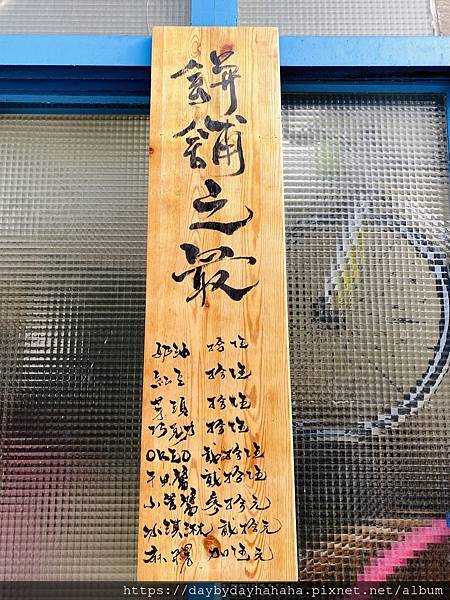 餅舖之最
奶油 拾伍
紅豆 拾伍
芋頭 拾伍
巧克力 拾伍
OREO 貳拾伍
干貝醬 貳拾伍
小管醬 參拾元
冰淇淋 貳拾元
麻糬 加伍元
https://daybydayhahaha.pixnet.net/album